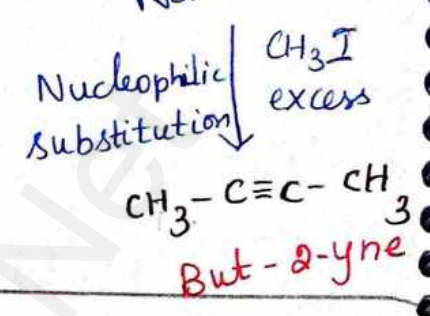 Nucleophilic
substitution
CH₃I
excess
CH₃-C≡C-CH₃
But-2-yne